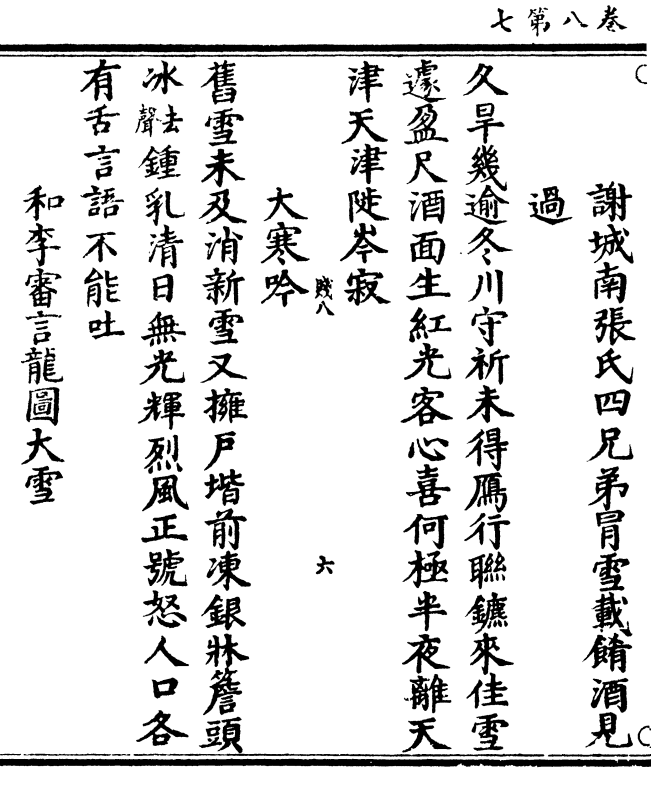 卷八第七
謝城南張氏四兄弟冒雪載餚酒見
過
久旱幾逾冬川守祈未得鴈行聯鑣來佳雪
遽盈尺酒面生紅光客心喜何極半夜離天
津天津陡岑寂
賤八
六
大寒吟
舊雪未及消新雪又擁戶堦前凍銀牀簷頭
冰去聲鍾乳清日無光輝烈風正號怒人口各
有舌言語不能吐
和李審言龍圖大雪